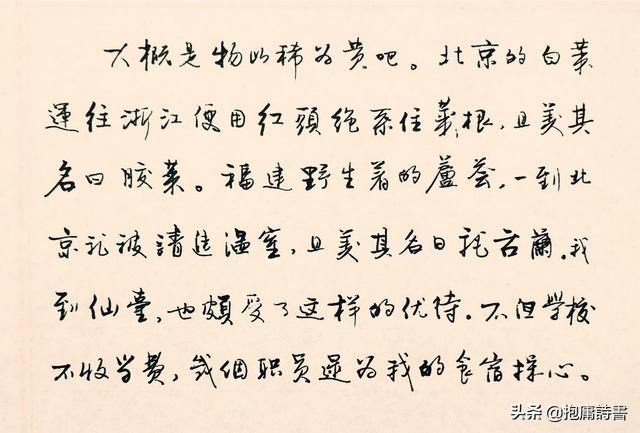 大概是物以稀为贵吧。北京的白菜
運往浙江便用红頭绳系住菜根，且美其
名曰胶菜。福建野生着的蘆荟，一到北
京就被請进温室，且美其名曰龍舌蘭。我
到仙臺，也頗受了这样的优待。不但学校
不收学费，幾個职员還为我的食宿操心。
头条 @抱庸詩書